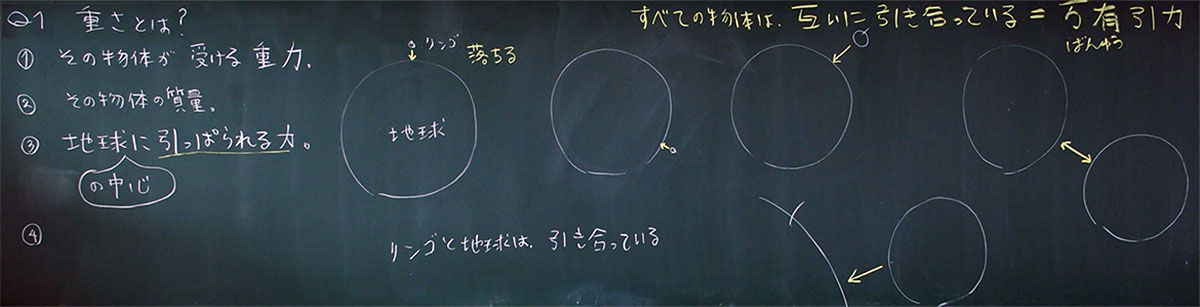 Q1 重さとは?
① その物体が 受ける 重力。
② その物体の質量。
③ 地球に引っぱられる力。
の中心
④
リンゴ
落ちる
地球
リンゴと地球は、引き合っている
すべての物体は、互いに引き合っている=万有引力
ばんゆう